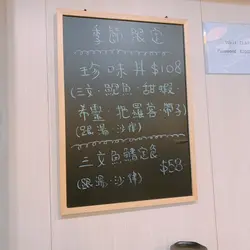 季節限定
珍味丼 $108
(三文·鰹魚·甜蝦·
希靈·北寄·帶子)
(跟湯·沙律)
三文魚鰭定食
(跟湯·沙律) $58